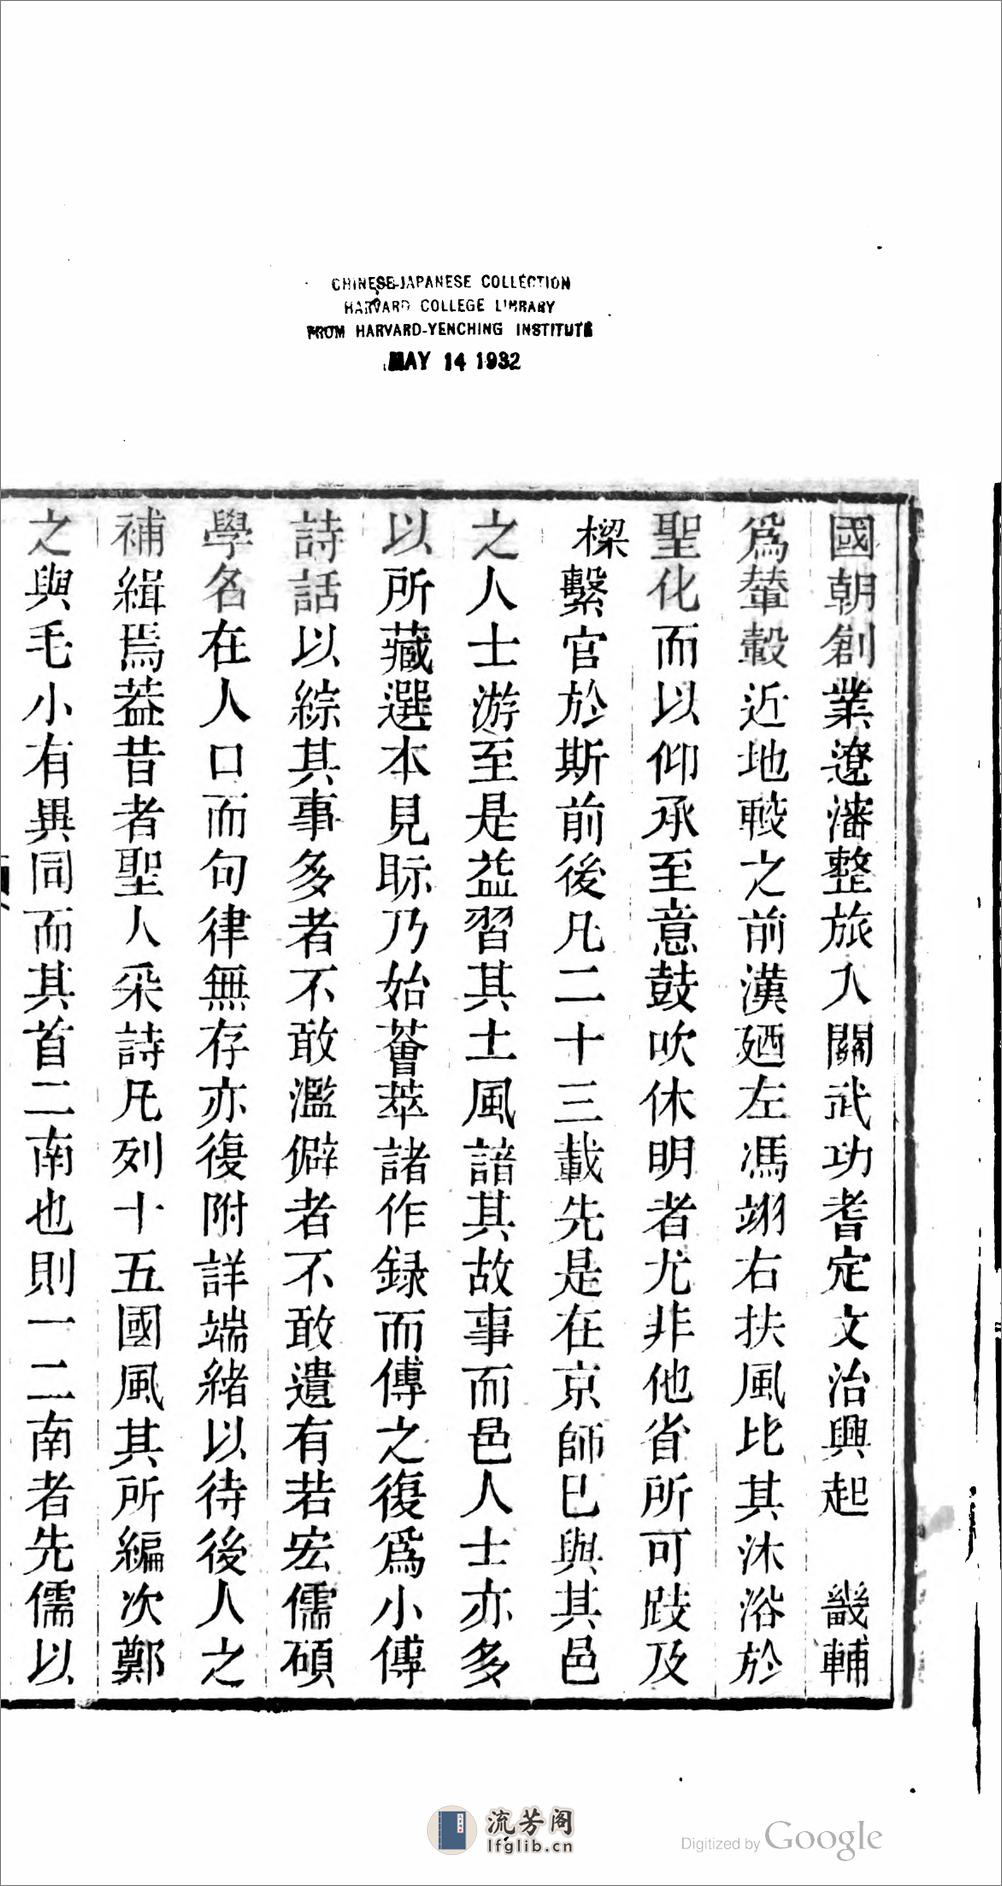 CHINESE-JAPANESE COLLECTION
HARVARD COLLEGE LIBRARY
FROM HARVARD-YENCHING INSTITUTE
MAY 14 1932
國朝創業遼瀋整旅入關武功耆定文治興起 畿輔
爲輦轂近地較之前漢廼左馮翊右扶風比其沐浴於
聖化而以仰承至意鼓吹休明者尤非他省所可跂及
樑繫官於斯前後凡二十三載先是在京師已與其邑
之人士游至是益習其土風諳其故事而邑人士亦多
以所藏選本見眎乃始薈萃諸作録而傳之復爲小傳
詩話以綜其事多者不敢濫僻者不敢遺有若宏儒碩
學名在人口而句律無存亦復附詳端緒以待後人之
補緝焉葢昔者聖人采詩凡列十五國風其所編次鄭
之與毛小有異同而其首二南也則一二南者先儒以
流芳阁
lfglib.cn
Digitized by Google